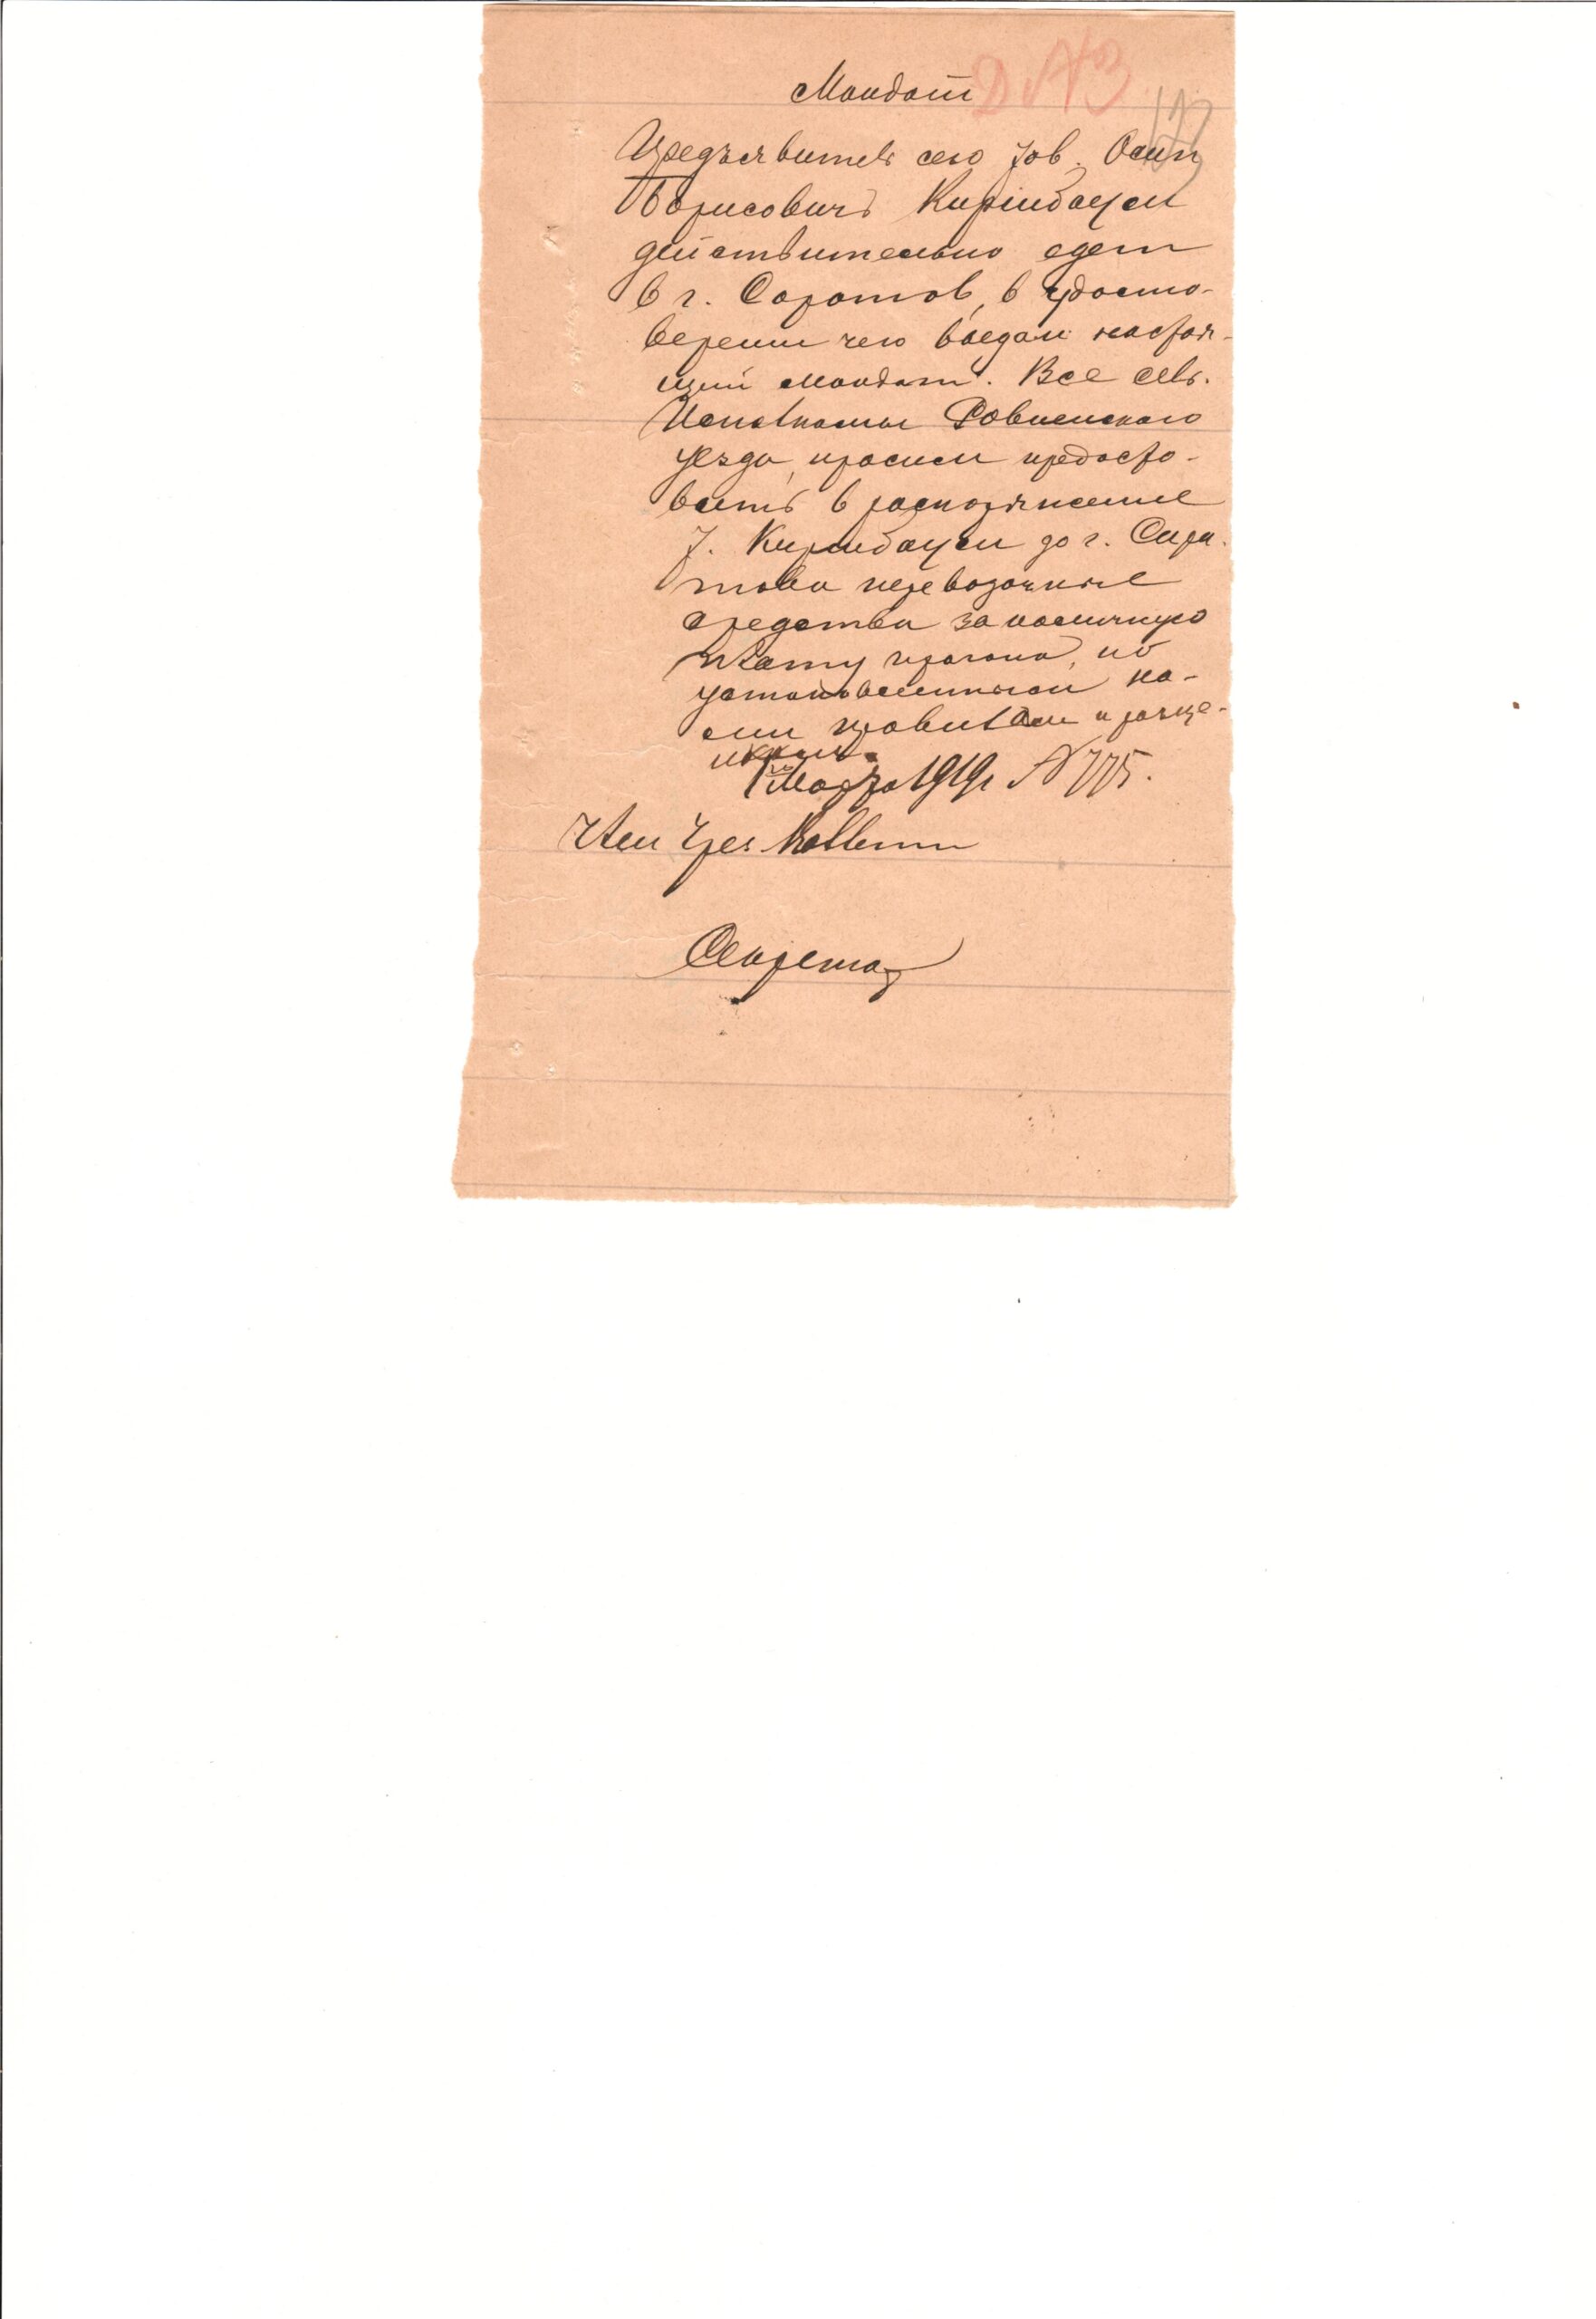 Мандат
Д №3
Предъявитель сего тов. Осип
Борисовичъ Киршбаум
действительно едет
в г. Саратов, в удосто-
верении чего выдан настоя-
щий мандат. Все сель.
Исполкомы Ровненского
уезда, просим предоста-
вить в распоряжение
т. Киршбаум до г. Сара-
това перевозочные
средства за наличную
плату прогона, по
установленным на-
ми правилам и расце-
нкам.
Марта 1919г №775.
Секретар